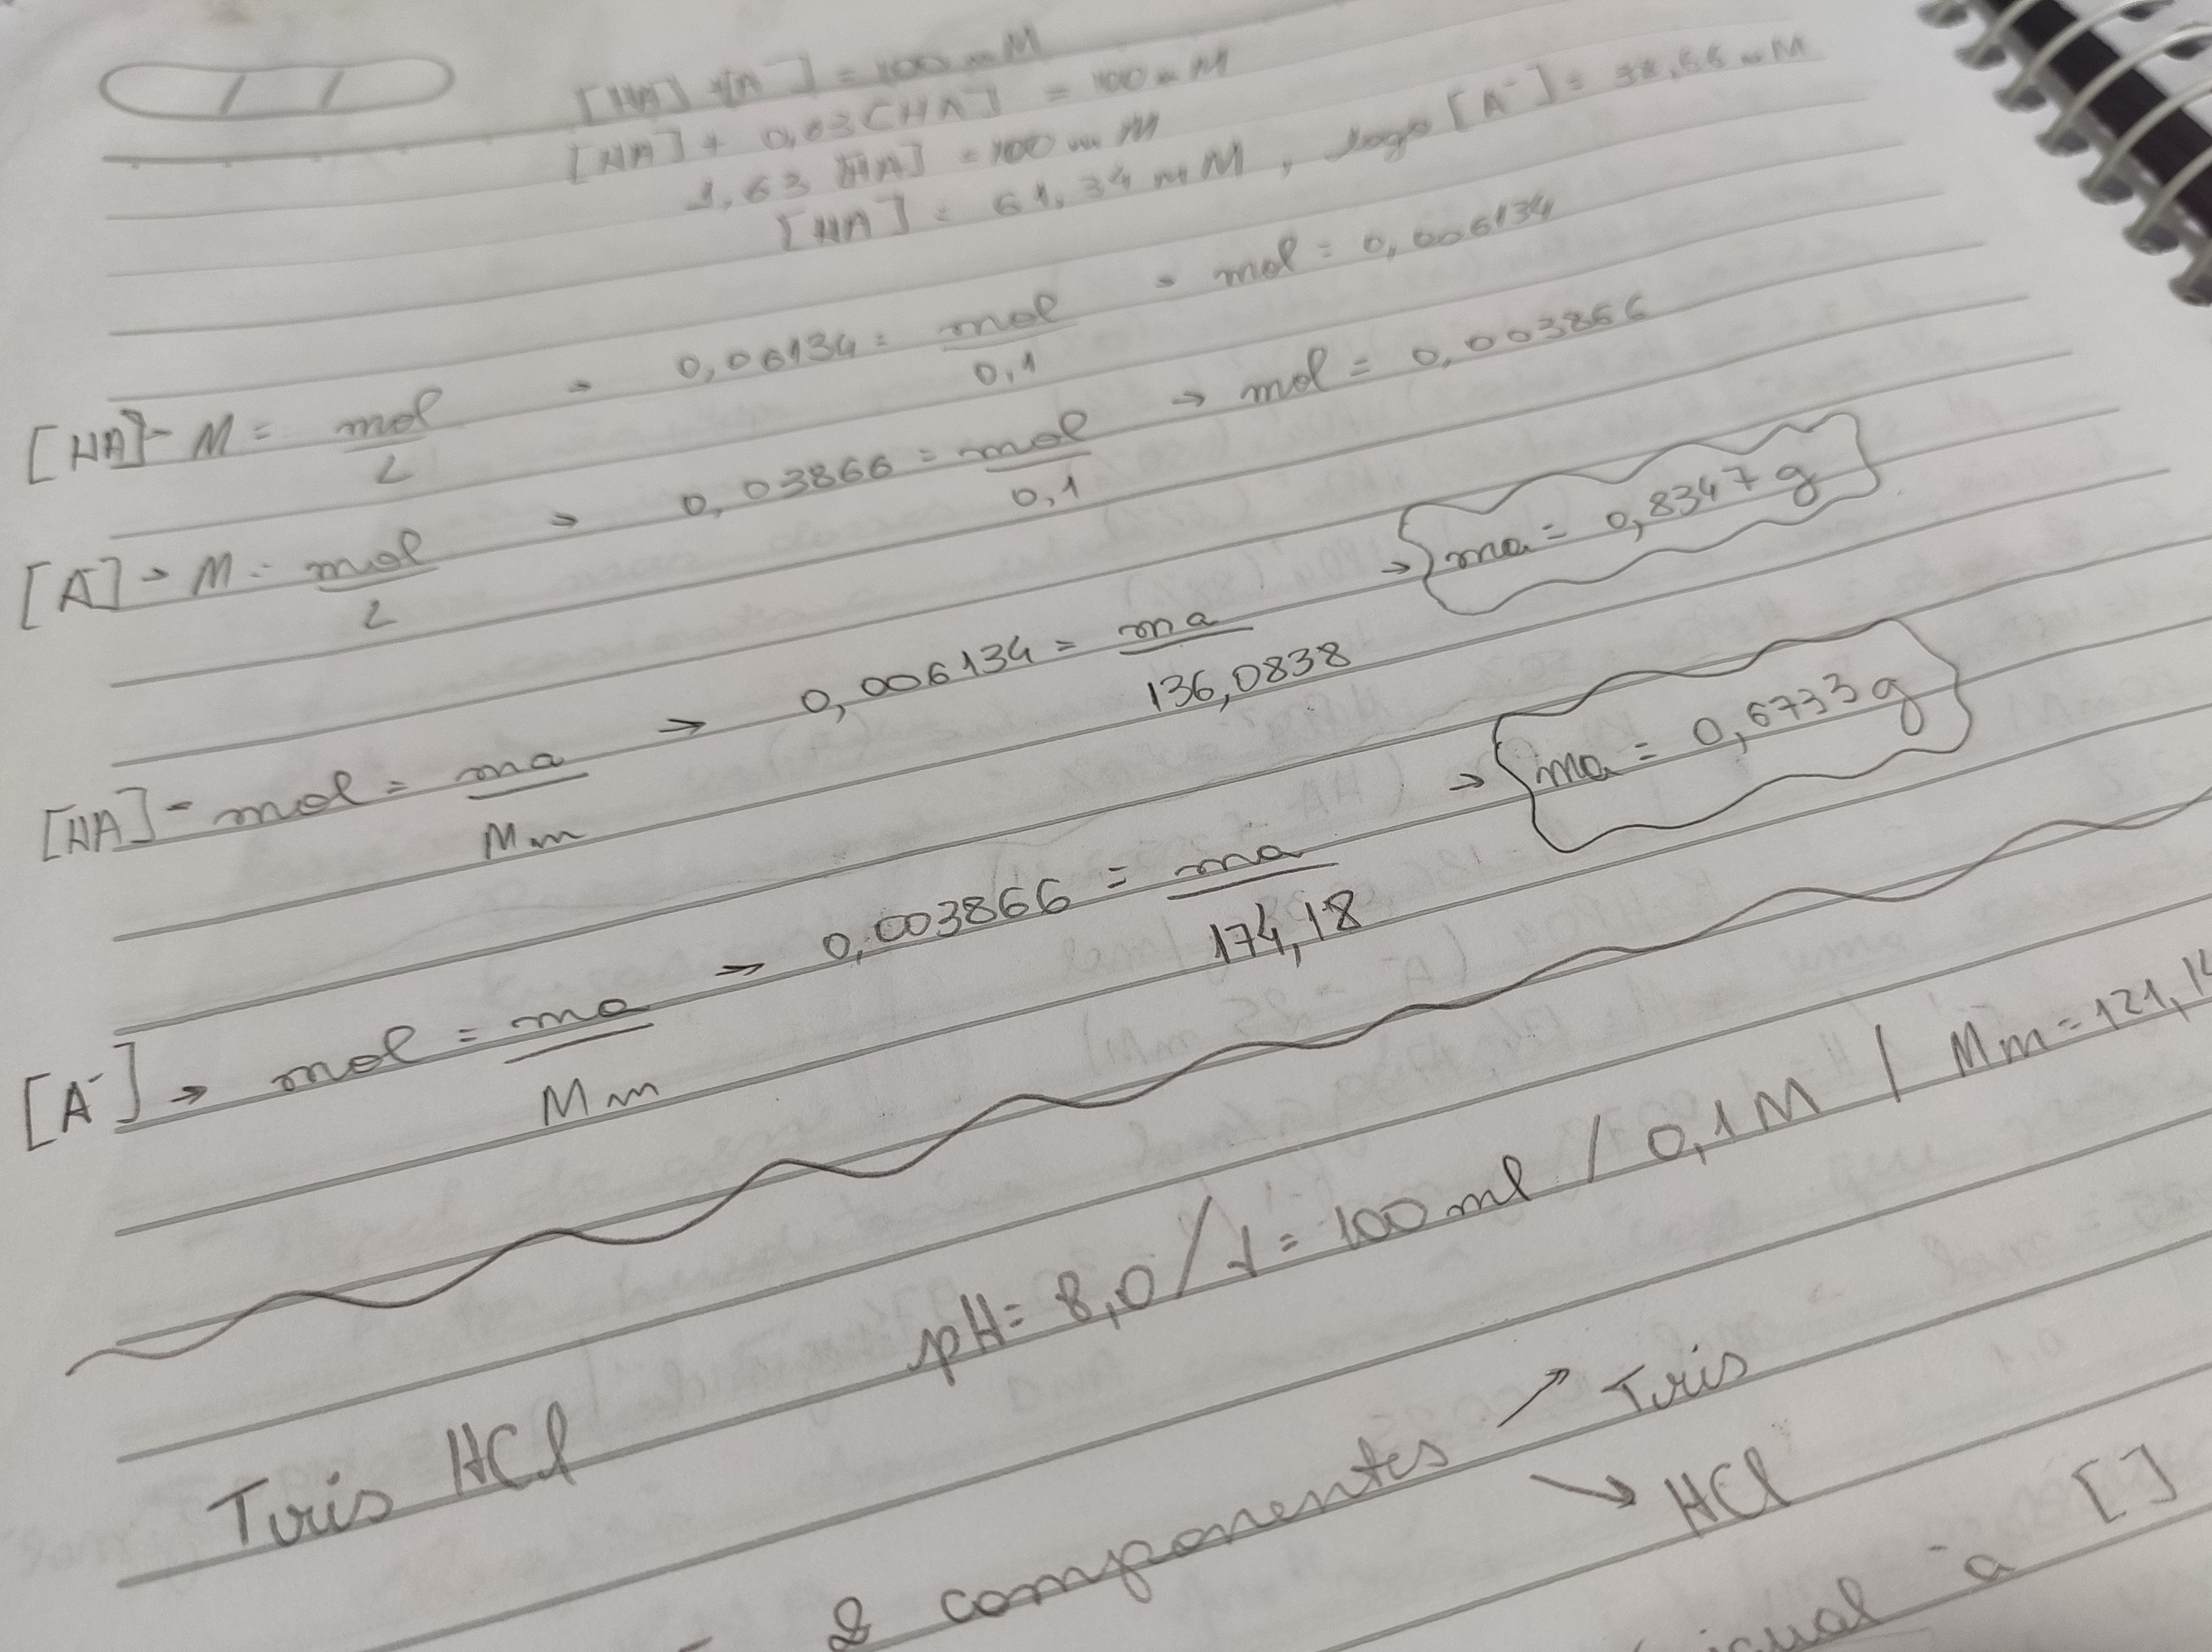 [HA] + [A⁻] = 100 mM
[HA] + 0,63 [HA] = 100 mM
1,63 [HA] = 100 mM
[HA] = 61,34 mM, logo [A⁻] = 38,66 mM
[HA] → M = mol / L → 0,06134 = mol / 0,1 → mol = 0,006134
[A⁻] → M = mol / L → 0,03866 = mol / 0,1 → mol = 0,003866
[HA] → mol = ma / Mm → 0,006134 = ma / 136,0838 → ma = 0,8347 g
[A⁻] → mol = ma / Mm → 0,003866 = ma / 174,18 → ma = 0,6733 g
Tris HCl pH = 8,0 / V = 100 ml / 0,1 M / Mm = 121,14
2 componentes → Tris
→ HCl
igual a []